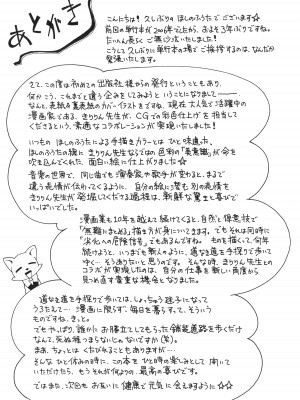 あとがき
こんにちは！久しぶりの ほしのふうた でございます☆
前回の単行本が 2006年ですから、およそ3年ぶりですね。
たいへん長らく ご無沙汰いたしました！
こうして 久しぶりに単行本の場で ご挨拶するのは、なんだか
緊張いたします。
さて、この度は初めての出版社様からの発行ということもあり、
何か こう、これまでと違う企みをしてみようということになりまして…
なんと、表紙&裏表紙のカバーイラストをですね、現在 大人気で活躍中の
漫画家である、きりりん先生が、CGで彩色仕上げを担当して
くださるという、素敵なコラボレーションが実現いたしました！
いつもの ほしのふうたによる手描きカラーとは ひと味違った、
ほしのふうたの線に きりりん先生ならではの色彩の「表情」が命を
吹き込んでくれた、面白い絵に仕上がりました☆
音楽の世界で、同じ曲でも演奏家や歌手が変わると、まるで
違う表情が伝わってくるように、自分の絵に潜む別の表情を
きりりん先生が発掘してくださる過程は、新鮮な驚きと喜びで
いっぱいでした。
漫画業も10年を越えて続けてくると、自然と得意技で
「無難にまとめる」描き方が身についてきます。でもそれは同時に
「劣化への危険信号」でもあるんですね。ものを描いて、何年
続けようと、いつまでも新人のように、道なき道を手探りで歩いて
ゆく…そうありたいと思うのです。そんな時、きりりん先生との
コラボが実現したのは、自分の仕事を新しい角度から
見つめ直す貴重な機会となりました。
道なき道を手探りで歩いては、しょっちゅう迷子になって
うろたえて…漫画に限らず、毎日を暮らすって、そういう
ものですね、きっと。
でもやっぱり、誰かにお膳立てしてもらった舗装道路を歩くだけ
なんて、死ぬ程つまらないじゃのないですか（笑）。
まあ、ちょっとは くたびれることもありますが…
そんな ひと休みの時に、この本を ひと時の楽しみとして開いて
いただけたら、もう それが何よりの、最高の喜びです。
ではまた、次回もお互いに健康で元気に会えますように☆☆